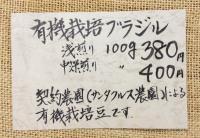 有機栽培ブラジル
浅煎り 100g 380円
中深煎り 〃 400円
契約農園(サンタフルス農園)による
有機栽培豆です。